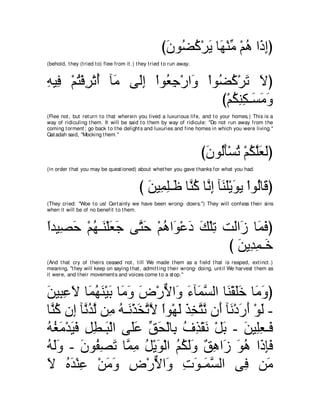 (إِذَا هُمْ مِّنْهَا يَرْكُضُونَ)
(behold. they (tried to) flee from it.) they tried to run away.
(لاَ تَرْكُضُواْ وَارْجِعُواْ إِلَى مَآ أُتْرِفْتُمْ فِيهِ
وَمَسَـكِنِكُمْ)
(Flee not, but return to that wherein you lived a luxurious life, and to your homes,) This is a
way of ridiculing them. It will be said to them by way of ridicule: "Do not run away from the
coming torment; go back to the delights and luxuries and fine homes in which you were living."
Qatadah said, "Mocking them."
(لَعَلَّكُمْ تُسْأَلُونَ)
(in order that you may be questioned) about whether you gave thanks for what you had.
(قَالُواْ يوَيْلَنَآ إِنَّا كُنَّا ظَـلِمِينَ )
(They cried: "Woe to us! Certainly we have been wrong- doers.") They will confess their sins
when it will be of no benefit to them.
(فَمَا زَالَت تِلْكَ دَعْوَاهُمْ حَتَّى جَعَلْنَـهُمْ حَصِيداً
خَـمِدِينَ )
(And that cry of theirs ceased not, till We made them as a field that is reaped, extinct.)
meaning, "they will keep on saying that, admitting their wrong- doing, until We harvest them as
it were, and their movements and voices come to a stop."
(وَمَا خَلَقْنَا السَّمَآءَ وَالاٌّرْضَ وَمَا بَيْنَهُمَا لاَعِبِينَ
- لَوْ أَرَدْنَآ أَن نَّتَّخِذَ لَهْواً لاَّتَّخَذْنَـهُ مِن لَّدُنَّآ إِن كُنَّا
فَـعِلِينَ - بَلْ نَقْذِفُ بِالْحَقِّ عَلَى الْبَـطِلِ فَيَدْمَغُهُ
فَإِذَا هُوَ زَاهِقٌ وَلَكُمُ الْوَيْلُ مِمَّا تَصِفُونَ - وَلَهُ
مَن فِى السَّمَـوَتِ وَالاٌّرْضِ وَمَنْ عِنْدَهُ لاَ